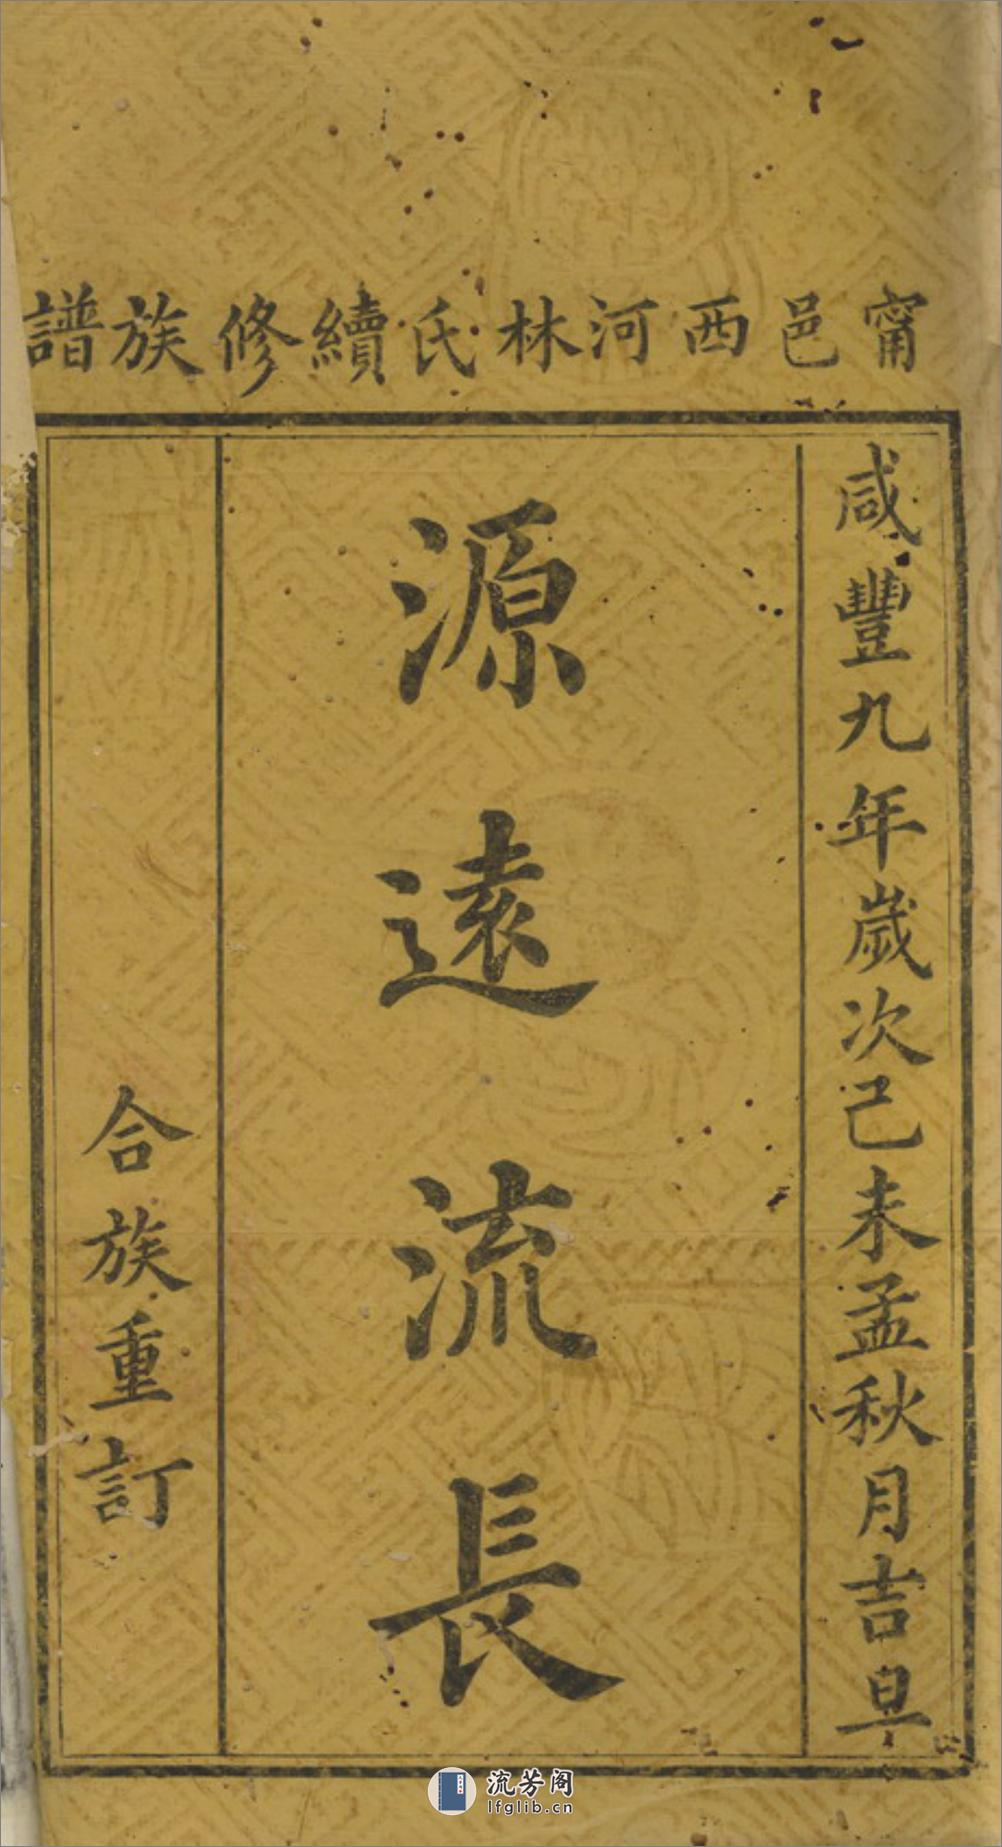 甯邑西河林氏續修族譜
咸豐九年歲次己未孟秋月吉旦
源遠流長
合族重訂
流芳阁
lfglib.cn